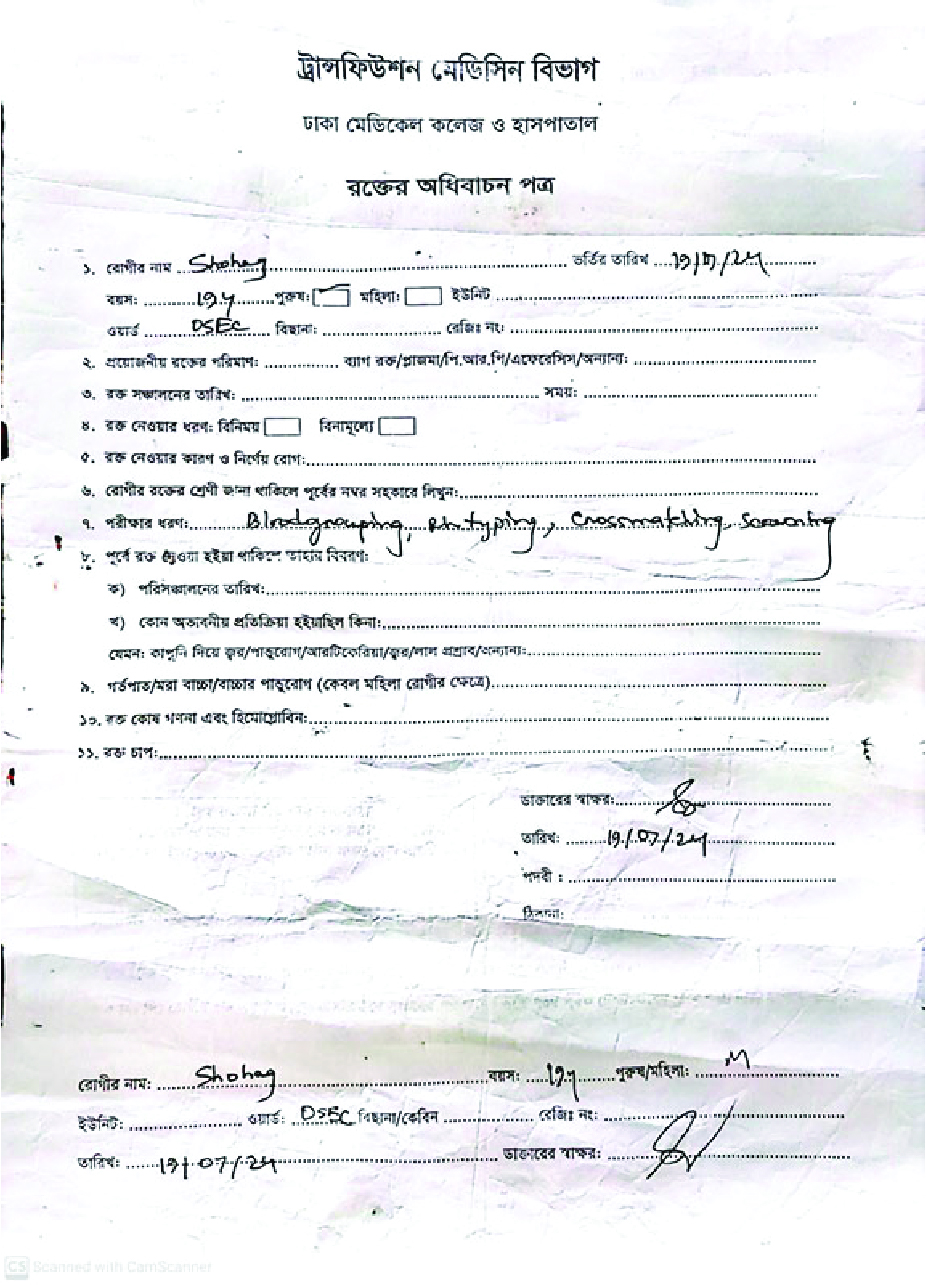 ট্রান্সফিউশন মেডিসিন বিভাগ
ঢাকা মেডিকেল কলেজ ও হাসপাতাল
রক্তের অধিবাচন পত্র
১. রোগীর নাম Shohag ভর্তির তারিখ
বয়স: 19y পুরুষ: মহিলা: ইউনিট
ওয়ার্ড OSEC বিছানা: রেজিঃ নং:
২. প্রয়োজনীয় রক্তের পরিমাণ: ব্যাগ রক্ত/প্লাজমা/পি.আর.পি/এফেরেসিস/অন্যান্য:
৩. রক্ত সঞ্চালনের তারিখ: সময়:
৪. রক্ত নেওয়ার ধরণ: বিনিময় বিনামূল্যে
৫. রক্ত নেওয়ার কারণ ও নির্ণেয় রোগ:
৬. রোগীর রক্তের শ্রেণী জানা থাকিলে পূর্বের নম্বর সহকারে লিখুন:
৭. পরীক্ষার ধরণ: Blood grouping, Rh typing, Crossmatching, Screening
৮. পূর্বে রক্ত দেওয়া হইয়া থাকিলে তাহার বিবরণ:
ক) পরিসঞ্চালনের তারিখ:
খ) কোন অভাবনীয় প্রতিক্রিয়া হইয়াছিল কিনা:
যেমন: কাপুনি দিয়ে জ্বর/পান্ডুরোগ/আরটিকেরিয়া/জ্বর/লাল প্রশ্রাব/অন্যান্য:
৯. গর্ভপাত/মরা বাচ্চা/বাচ্চার পান্ডুরোগ (কেবল মহিলা রোগীর ক্ষেত্রে)
১০. রক্ত কোষ গণনা এবং হিমোগ্লোবিন:
১১. রক্ত চাপ:
ডাক্তারের স্বাক্ষর:
তারিখ: 19/07/24
পদবী :
ঠিকানা:
রোগীর নাম: Shohag বয়স: 19y পুরুষ/মহিলা: M
ইউনিট: ওয়ার্ড: OSEC বিছানা/কেবিন রেজিঃ নং:
তারিখ: 19/07/24 ডাক্তারের স্বাক্ষর:
CS Scanned with CamScanner